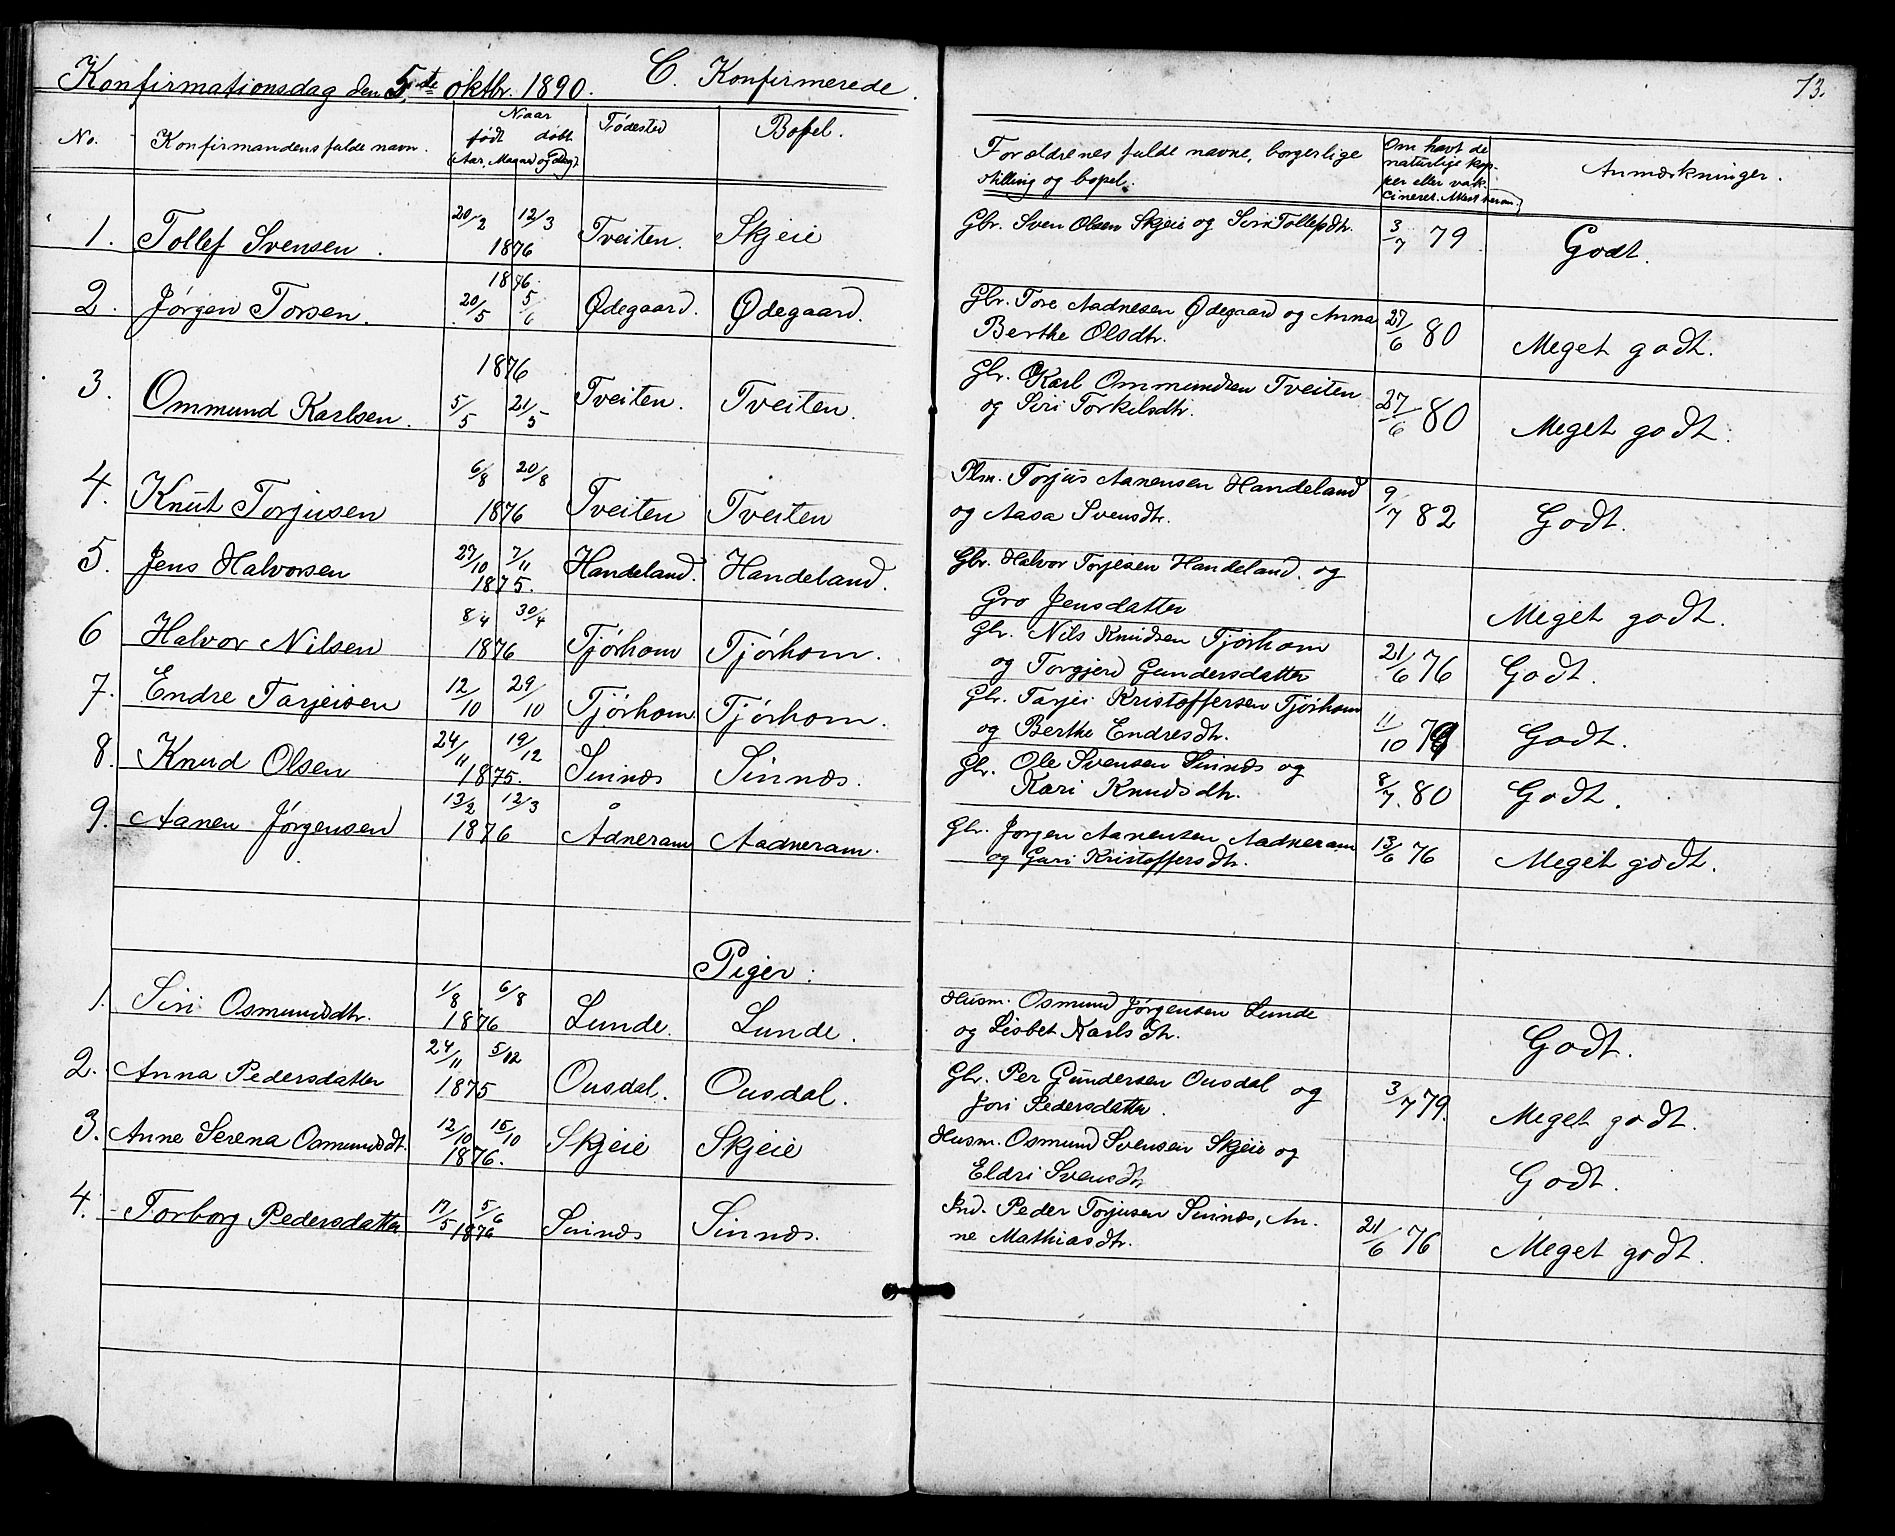 Konfirmationsdag den 5te oktbr. 1890. C. Konfirmerede.
13.
No. Konfirmandens fulde navn. Naar født døbt (Aar, Maaned og Dag). Fødested Bopel. Forældrenes fulde navne, borgerlige stilling og bopel. Om havt de naturlige kopper eller vakcineret. Anmærkninger.
1. Tollef Svensen. 20/2 12/3 1876 Tveiten. Skjeie Gbr. Sven Olsen Skjeie og Siri Tollefsdtr. 3/7 79 Godt.
2. Jørgen Torsen. 1876 20/5 5/6 Ødegaard. Ødegaard. Gbr. Tore Aadnesen Ødegaard og Anna
Berthe Olsdtr. 27/6 80 Meget godt.
3. Ommund Karlsen. 1876 5/5 21/5 Tveiten. Tveiten. Gbr. Karl Ommundsen Tveiten
og Siri Torkilsdtr. 27/6 80 Meget godt.
4. Knut Torjusen 6/8 20/8 1876 Tveiten Tveiten Plm. Torjus Aanensen Handeland
og Aasa Svensdtr. 9/7 82 Godt.
5. Jens Halvorsen 27/10 7/11 1875. Handeland. Handeland. Gbr. Halvor Torjesen Handeland. og
Gro Jensdatter Meget godt.
6 Halvor Nilsen 8/4 30/4 1876 Tjørhom Tjørhom. Gbr. Nils Knudsen Tjørhom
og Torgjerd Gundersdatter 21/6 76 Godt.
7. Endre Tarjeisen 12/10 29/10 Tjørhom Tjørhom. Gbr. Tarjei Kristoffersen Tjørhom
og Berthe Endresdtr. 11/10 79 Godt.
8. Knud Olsen 24/11 19/12 1875. Sinnæs Sinnæs. Gbr. Ole Svensen Sinnæs og
Kari Knudsdtr. 8/7. 80 Godt.
9. Aanen Jørgensen 13/2 12/3 1876 Ådneram Aadneram. Gbr. Jørgen Aanensen Aadneram
og Guri Kristoffersdtr. 13/6 76 Meget godt.
Piger:
1. Siri Osmundsdtr. 1/8 6/8 1876 Lunde. Lunde. Husm. Osmund Jørgensen Lunde
og Lisbet Karlsdtr. Godt.
2. Anna Pedersdatter 24/11 5/12 1875 Ousdal. Ousdal. Gbr. Per Gundersen Ousdal og
Jori Pedersdatter. 3/7 79. Meget godt.
3. Anne Serena Osmundsdt. 12/10 15/10 1876. Skjeie Skjeie Husm. Osmund Svensen Skjeie og
Eldri Svensdtr Godt.
4. Torborg Pedersdatter 17/5 5/6 1876 Sinnæs Sinnæs. Ind. Peder Torjusen Sinnæs, An-
ne Mathiasdtr. 21/6 76 Meget godt.